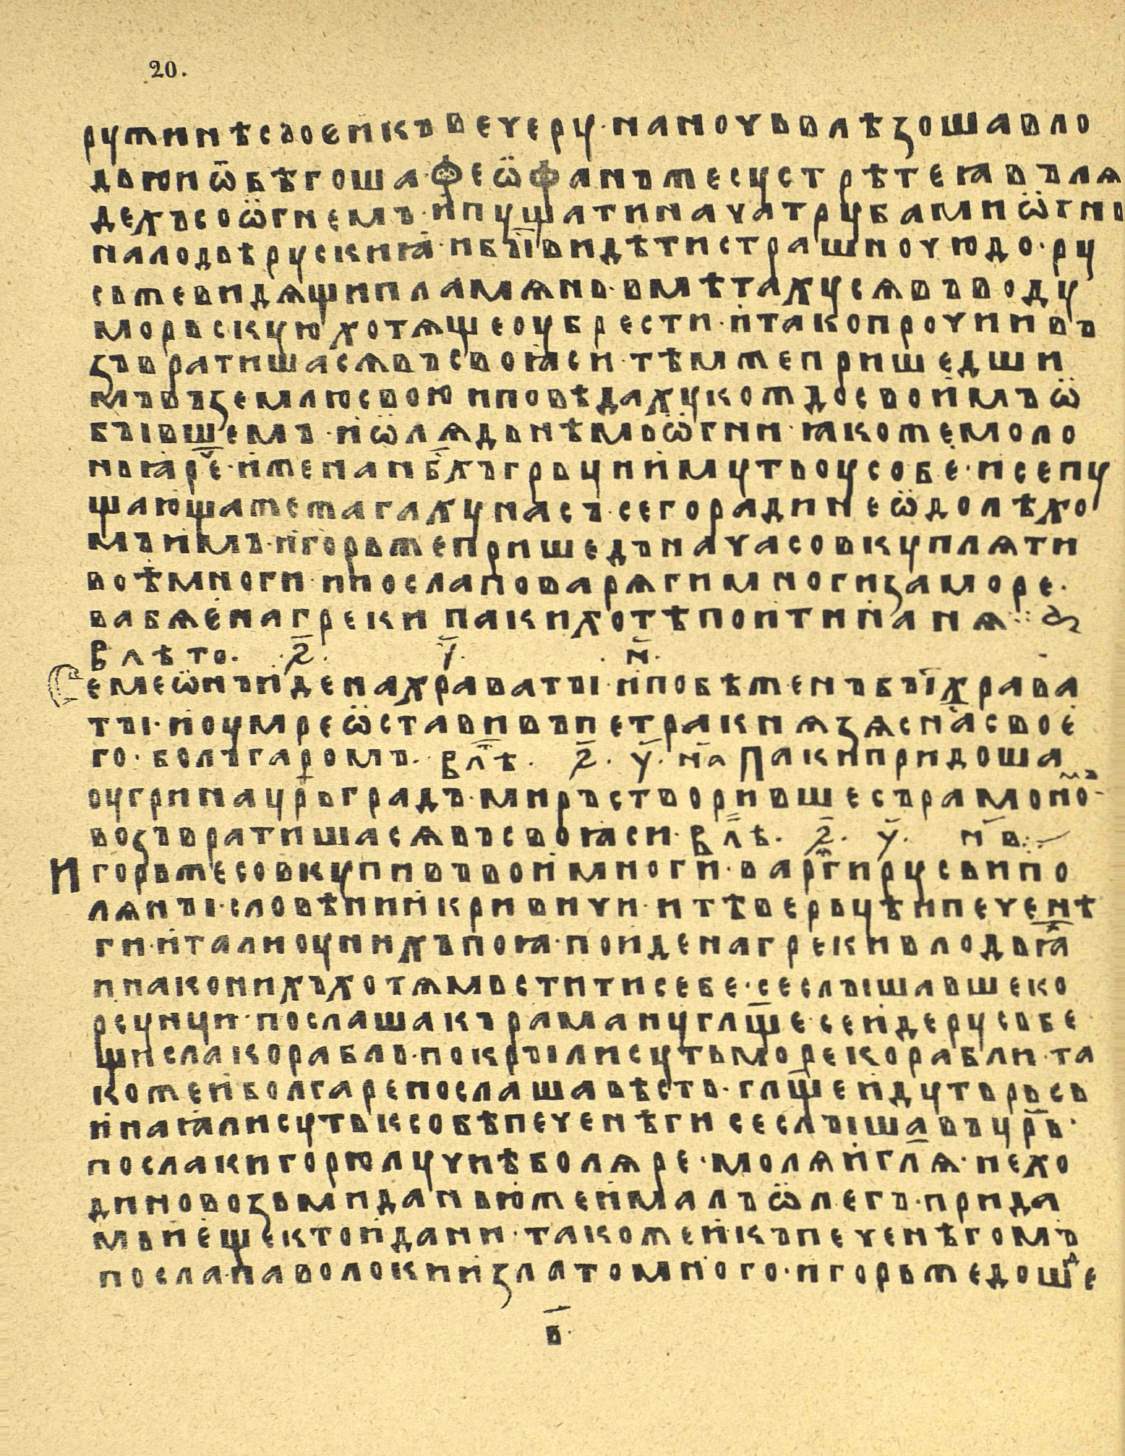 20.
ружинѣ своеи къ вечеру · на ночь влѣзоша в ло
дьи и ѿбѣгоша · Феѡфанъ же сустрѣте ꙗ въ лѧ
дехъ со ѡгнемъ · и пущати нача трубами ѡгнь
на лодьѣ рускиꙗ · и бъі видѣти страшно чюдо · ру
сь же видѧщи пламѧнь · вмѣтахусѧ въ воду
морьскую хотѧще оубрести · и тако прочии въ
звратишасѧ въ своꙗси · тѣмже пришедши
мъ въ землю свою и повѣдаху кождо своимъ ѡ
бъівшемъ · и ѡ лѧдьнѣмь ѡгни · ꙗкоже моло
ньꙗ рече · иже на нб҃хъ грьци имуть оу собе · и се пу
щающа жежагаху насъ · сего ради не ѡдолѣхо
мъ имъ · игорь же пришедъ нача совкуплѧти
воѣ многи · и посла по варѧги многи за море ·
вабѧ е на греки паки хотѧ поити на нѧ ·:·
В лѣто · ҂ѕ҃ · у҃ · н҃ ·
Семеѡнъ иде на храватъі · и побѣженъ бъі храва
тъі · и оумре ѡставивъ петра кнѧзѧ сн҃а свое
го · болъгаромъ · в лѣ҃т · ҂ѕ҃ · у҃ · н҃а Паки придоша
оугри на царьградъ · миръ створивше съ рамономъ ·
возъвратишасѧ въ своꙗси · в лѣ҃ · ҂ѕ҃ · у҃ · н҃в ·:·
Игорь же совкупивъ вои многи · варѧги русь и по
лѧнъі · словѣни и кривичи · и тѣверьцѣ и печенѣ
ги · и тали оу нихъ поꙗ · поиде на греки в лодьꙗ҃х
и на конихъ хотѧ мьстити себе · се слъішавше ко
рсунци · послаша къ раману глщ҃е се идеть русь бе
щисла корабль · покръіли суть море корабли · та
коже и болгаре послаша вѣсть · глщ҃е идуть русь
и наꙗли суть к собѣ печенѣги се слъішавъ цр҃ь ·
посла к игорю лучиѣ болѧре · молѧ и гл҃ѧ · не хо
ди но возьми дань юже ималъ ѡлегъ · прида
мь и еще к тои дани · такоже и къ печенѣгомъ
посла паволоки и злато много · игорь же дошед
в҃ ·